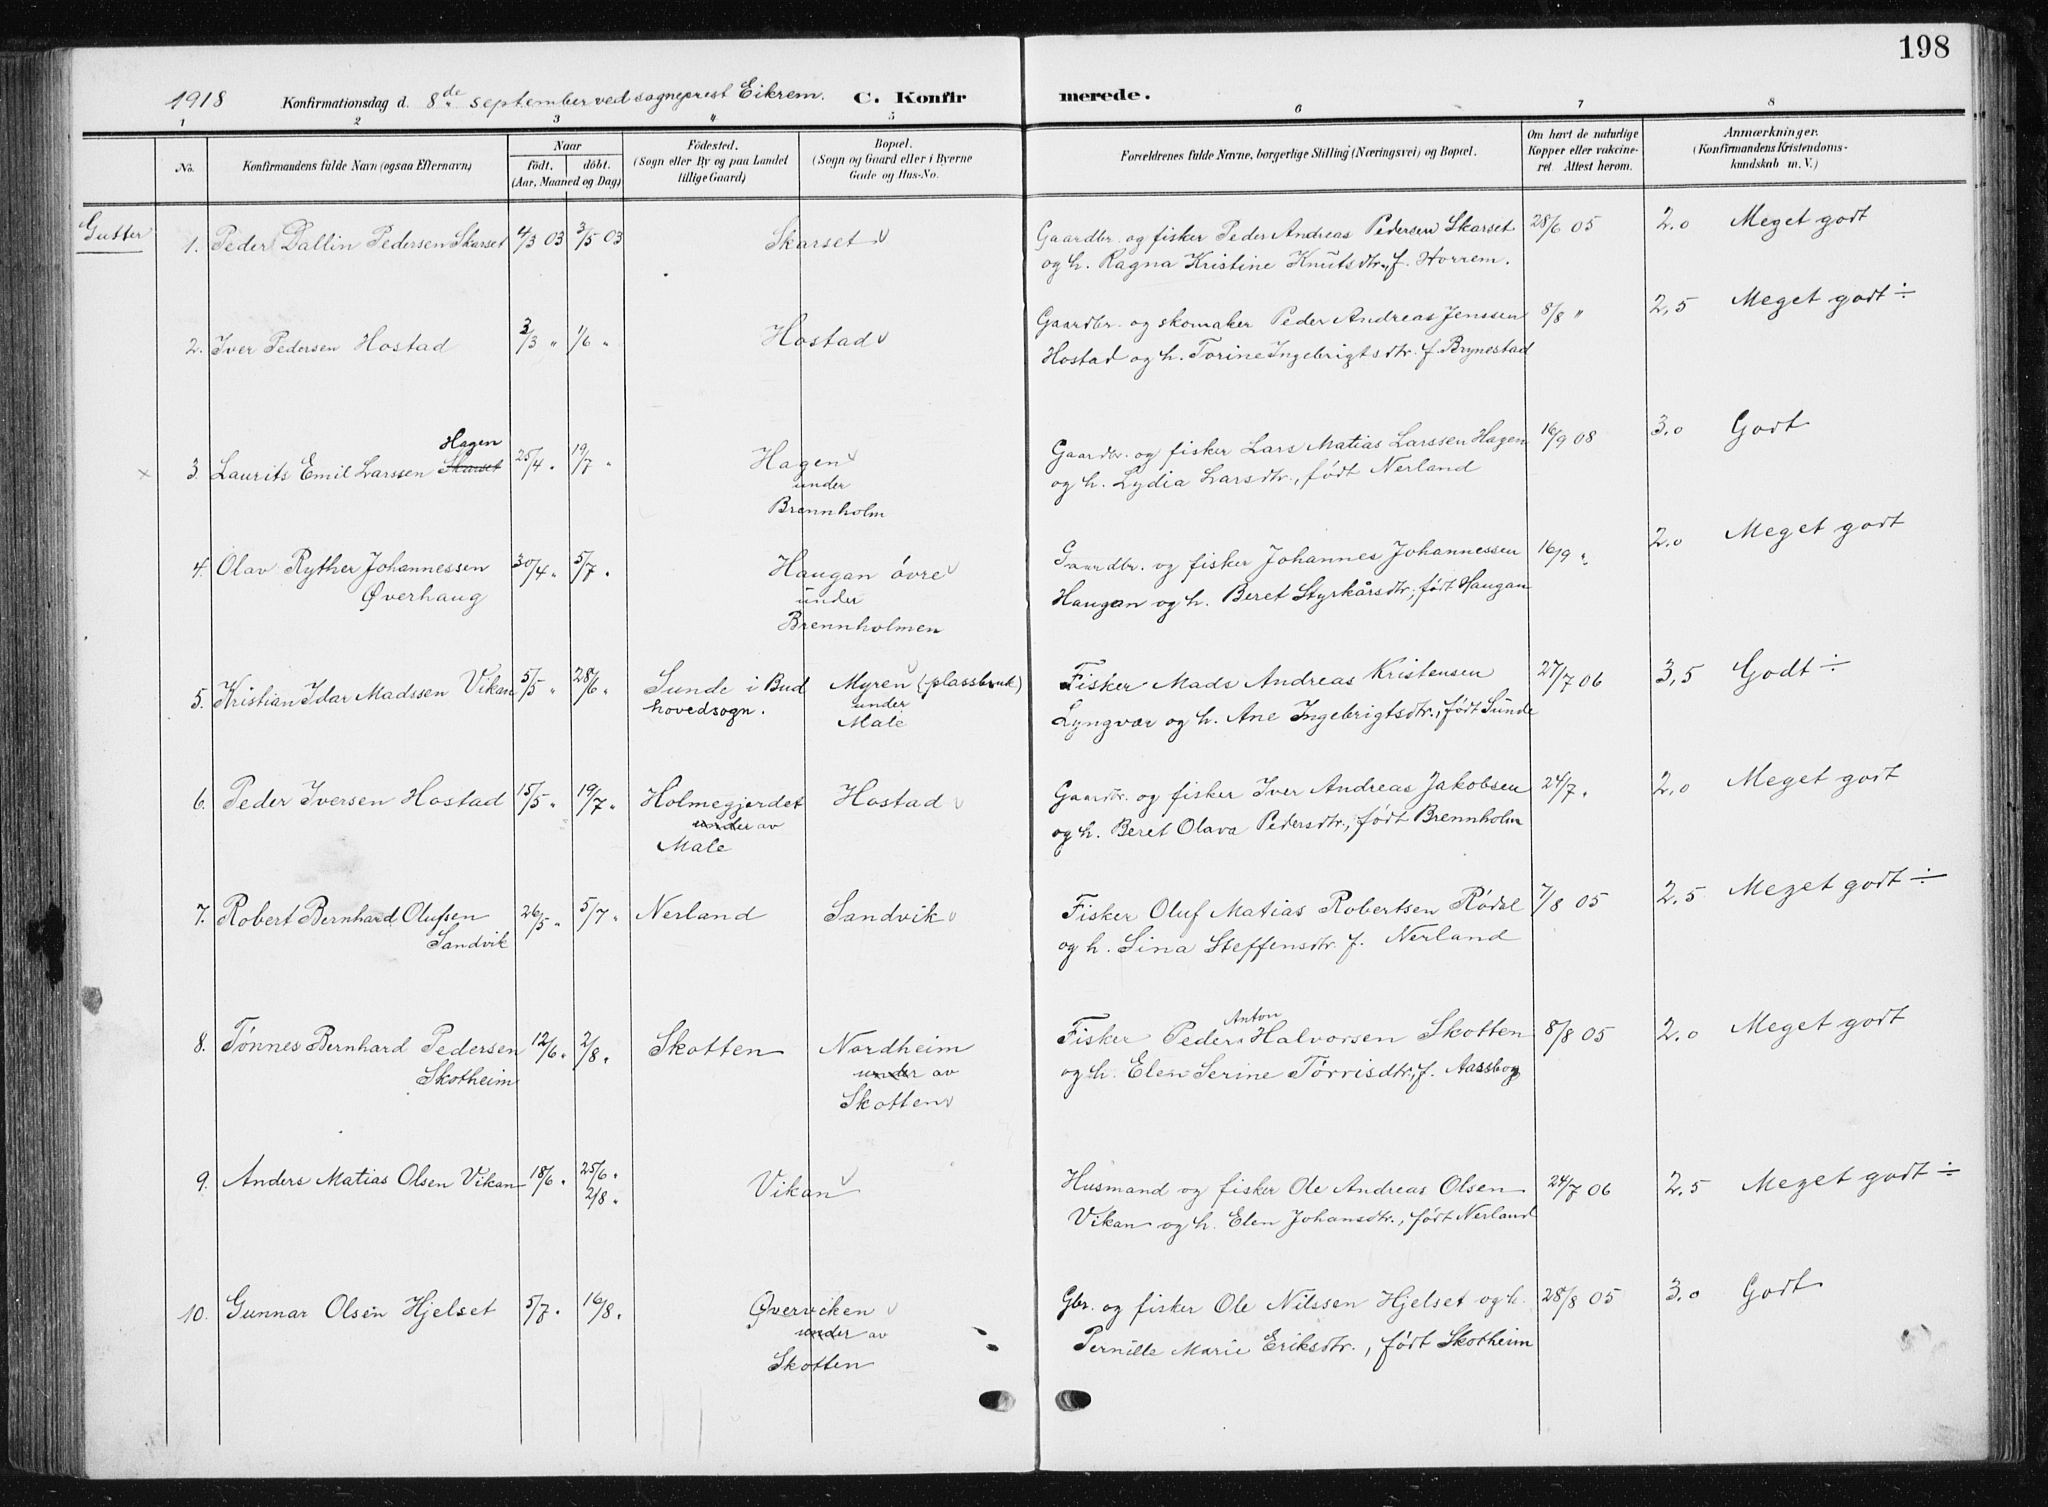 198
1918 Konfirmationsdag d. 8de september ved sogneprest Eikrem. C. Konfirmerede.
1 2 3 4 5 6 7 8
No. Konfirmandens fulde Navn (ogsaa Efternavn) Naar født. døbt. (Aar, Maaned og Dag) Fødested. (Sogn eller By og paa Landet tillige Gaard) Bopæl. (Sogn og Gaard eller i Byerne Gade og Hus-No. Forældrenes fulde Navne, borgerlige Stilling (Næringsvei) og Bopæl. Om havt de naturlige Kopper eller vakcineret. Attest herom. Anmærkninger. (Konfirmandens Kristendomskundskab m. V.)
Gutter
1. Peder Dallin Pedersen Skarset 4/3 03 3/5 03 Skarset Gaardbr. og fisker Peder Andreas Pedersen Skarset 28/6 05 2.0 Meget godt
og h. Ragna Kristine Knutsdtr., f. Horrem.
2. Iver Pedersen Hostad 3/3 " 1/6 " Hostad Gaardbr. og skomaker Peder Andreas Jenssen 8/8 " 2,5 Meget godt ÷
Hostad og h. Torine Ingebrigtsdtr. f. Brynestad
Hagen
× 3. Laurits Emil Larssen Skarset 25/4 " 19/7 " Hagen Gaardbr. og fisker Lars Matias Larssen Hagen 16/9 08 3.0 Godt
under og h. Lydia Larsdtr., født Nerland
Brennholm
4. Olav Ryther Johannessen 30/4 " 5/7 " Haugan øvre Gaardbr. og fisker Johannes Johannessen 16/9 " 2.0 Meget godt
Øverhaug under Haugan og h. Beret Styrkårsdtr., født Haugan
Brennholmen
5. Kristian Idar Madssen Vikan 5/5 " 28/6 " Sunde i Bud Myren (plassbruk) Fisker Mads Andreas Kristensen 27/7 06 3,5 Godt ÷
hovedsogn. under Lyngvær og h. Ane Ingebrigtsdtr., født Sunde
Male
6. Peder Iversen Hostad 15/5 " 19/7 " Holmegjerdet Hostad Gaardbr. og fisker Iver Andreas Jakobsen 24/7 " 2.0 Meget godt
under av og h. Beret Olava Pedersdtr., født Brennholm
Male
7. Robert Bernhard Olufsen 26/5 " 5/7 " Nerland Sandvik Fisker Oluf Matias Robertsen Rødal 7/8 05 2.5 Meget godt ÷
Sandvik og h. Sina Steffensdtr. f. Nerland
Anton
8. Tønnes Bernhard Pedersen 12/6 " 2/8 " Skotten Nordheim Fisker Peder Halvorsen Skotten 8/8 05 2.0 Meget godt
Skotheim under av og h. Elen Serine Tørrisdtr., f. Aassbog
Skotten
9. Anders Matias Olsen Vikan 18/6 " 25/6 " Vikan Husmand og fisker Ole Andreas Olsen 24/7 06 2.5 Meget godt ÷
2/8 " Vikan og h. Elen Johansdtr., født Nerland
10. Gunnar Olsen Hjelset 5/7 " 16/8 " Øverviken Gbr. og fisker Ole Nilssen Hjelset og h. 28/8 05 3.0 Godt
under av Pernille Marie Eriksdtr., født Skotheim
Skotten